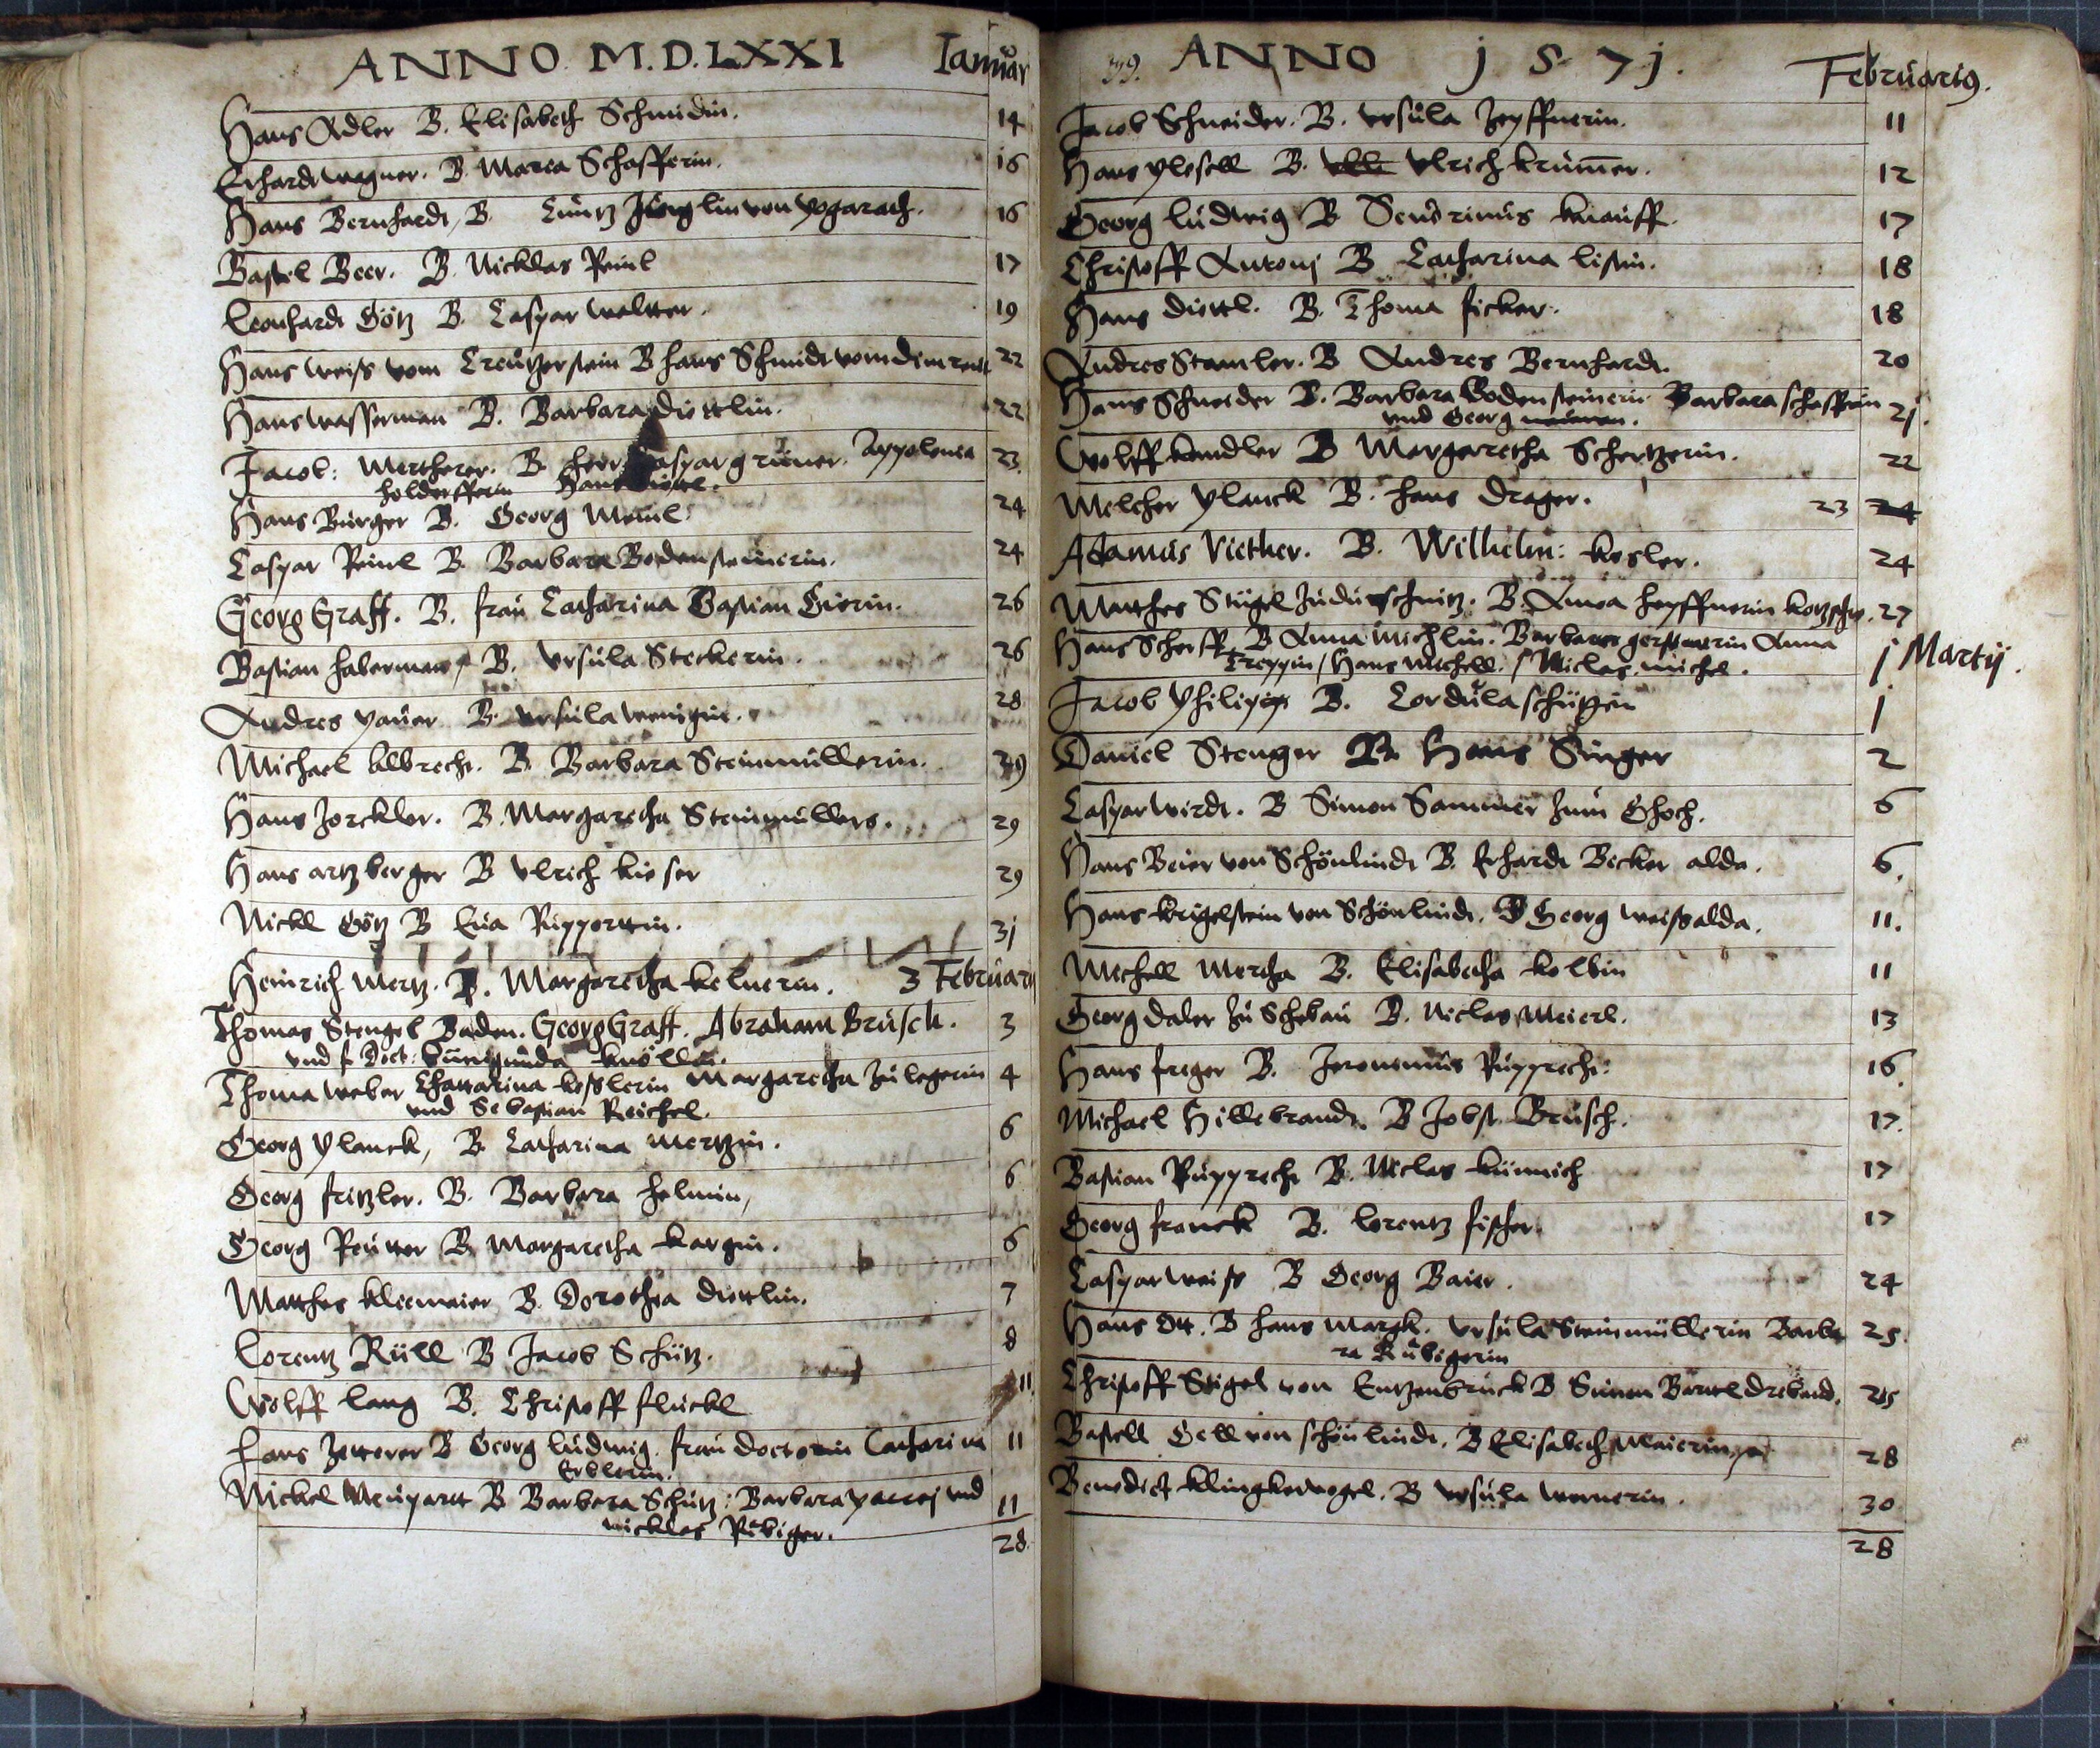 ANNO M.D.LXXI Ianuar
Hans Adler B. Elisabeth Schmidin. 14
Erhardt wagner. B. Maria Schafferin. 16
Hans Bernhardt, B. Cuntz Jörglin von 16
Bastel Beer. B. Nicklas Peinl 17
Leonhardt Götz B. Caspar waltter. 19
Hans weiss vom Creützerstein B hans Schmidt vom 22
Hans wasserman B. Barbara Düettlin. 22
Jacob: Mertherer. B. herr Caspar grüner. Appolonia 23
holderfferin Hans
Hans Burger B. Georg Meinl. 24
Caspar Peinl B. Barbara Bodensteinerin. 24
Georg Graff. B. frau Catharina Bastian Gierin. 26
Bastian haberman, B. Vrsula Steckerin. 26
Andres paur B. Vrsula wenigin. 28
Michael Albrecht. B. Barbara Steinmüllerin. 29
Hans Jorckler. B. Margaretha Steinmüllers. 29
Hans artzberger B Vlrich kieser 29
Nickl Götz B Eua Rupporttin. 31
Heinrich Mertz. B. Margaretha kelnerin. 3 Februarij
Thomas Stengel Baden. Georg Graff. Abraham Brusch. 3
vnd f. Doct: Cunigunda knöllin.
Thoma weber Chattarina kesslerin Margaretha Zulegerin 4
vnd Sebastian Reichel.
Georg planck, B. Catharina Mertzin. 6
Georg fritzler. B. Barbara helmin, 6
Georg Reutter B. Margaretha kargin. 6
Matthes kleemaier B. Dorothea düettlin. 7
Lorentz Rüll B Jacob Schütz. 8
Wolff lang B. Christoff fluckl 11
Hans Zetterer B Georg ludwig. frau doctorin Catharina 11
Erblerin.
Nickel B Barbara Schütz: Barbara vnd 11
nicklas Rubiger.
28
ANNO j 5 7 j. Februarius.
Jacob Schneider. B. vrsula 11
Hans plesell B. Vlrich krümmer. 12
Georg ludwig B Seuerinus knauff. 17
Christoff Antonj B Catharina listin. 18
Hans düettl. B. Thoma ficker. 18
Andres Stamler. B Andres Bernhardt. 20
Hans Schneider B. Barbara Bodensteinerin Barbara schafferin 21
vnd Georg
Wolff kandler B Margaretha Schertzerin. 22
Melcher planck B. hans Drager. 23 24
Adamus Viether. B. Wilhelm: kesler. 24
Matthes Stügel B. Anna heyffnerin 27
Hans Scherff B Anna Michlin. Barbara gerstnerin Anna j Martij.
Treppin / Hans Michell. / Niclas michel.
Jacob Philipp B. Cordula schützin j
Daniel Stenger B. Hans Singer 2
Caspar wirdt. B Simon Sammer zum Ghoch. 6
Hans Beier von Schönlindt B. Erhardt Becker alda. 6.
Hans krigelstein von Schönlindt. B Georg weiss alda. 11.
Michell Mertha B. Elisabetha kolbin 11
Georg daler zu Schebau B. Niclas Meierl. 13
Hans freger B. Jeronemus Rupprecht: 16.
Michael Hillebrandt. B Jobst Brusch. 17.
Bastian Rupprecht B. Niclas künnich 17
Georg franck B. lorentz fischer. 17
Caspar weiss B Georg Baier. 24
Hans Ott. B hans Margk. vrsula Steinmüllerin Barba 25.
ra Rubigerin
Christoff Stigel von B Simon Barttl 25
Bastell Gell von schönlindt. B Elisabeth Maierin 28
Benedict klingkervogel. B vrsula wernerin. 30
28